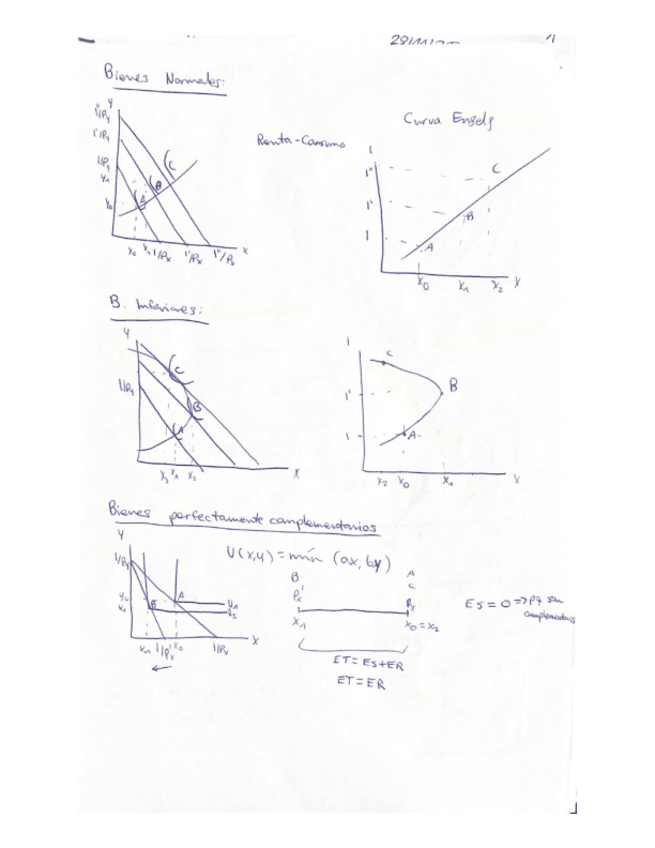 Bienes Normales:
Y
I''/Py
I'/Py
I/Py
Y1
Y0
A
B
C
X0 X1 I/Px I'/Px I''/Px X
Renta-Consumo
Curva Engels
I
I''
I'
I
A
B
C
X0 X1 X2 X
B. Inferiores:
Y
I/Py
C
B
A
X2 X1 X
I
C
I'
B
I
A
X2 X0 X1 X
Bienes perfectamente complementarios
Y
U(x,y) = mín (ax, by)
I/Py
Y0
Y1
B
A
X1 I/Px' X0 I/Px X
←
B
Px'
X1
A
C
Px
X0 = X2
ET = ES + ER
ET = ER
ES = 0 => Pq son
complementarios